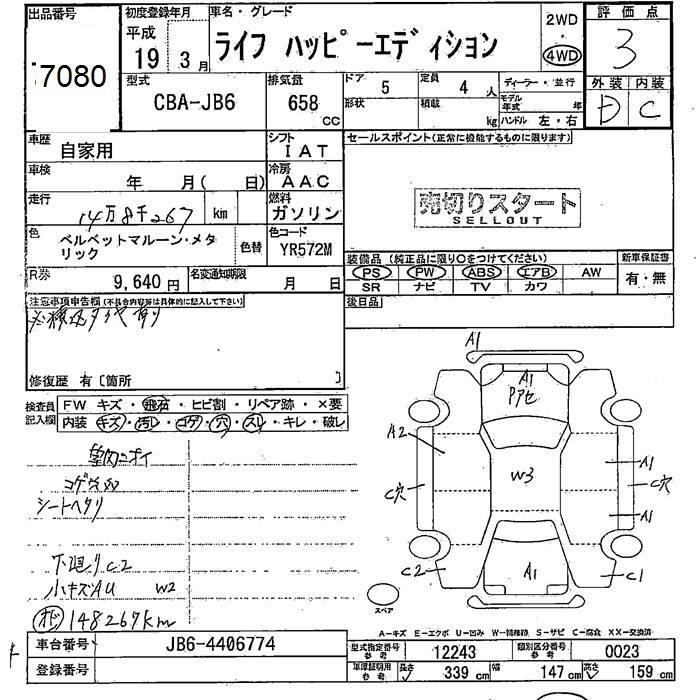 出品番号
7080
初度登録年月
平成
19 3月
車名・グレード
ライフ ハッピーエディション
2WD
4WD
評価点
3
型式
CBA-JB6
排気量
658
CC
ドア 5
定員 4人
形状
積載 kg
ディーラー・並行
モデル年式 年
ハンドル 左・右
外装 内装
D C
車歴
自家用
シフト
IAT
セールスポイント(正常に機能するものに限ります)
車検
年 月( 日)
冷房
AAC
売切りスタート
SELLOUT
走行
14万8千267 km
燃料
ガソリン
色
ベルベットマルーン・メタリック
色替
色コード
YR572M
装備品(純正品に限り○をつけてください)
新車保証書
PS PW ABS エアB AW
SR ナビ TV カワ
有・無
R券
9,640円
名変通知期限
月 日
後日品
注意事項申告欄(不具合内容等は具体的に記入して下さい)
修復歴 有〔箇所 〕
検査員記入欄
FW キズ・飛石・ヒビ割・リペア跡・×要
内装 キズ・汚レ・コゲ・穴・スレ・キレ・破レ
室内ニオイ
シートヘタリ
下廻りC2
小キズAU W2
148267km
A1
A1
A2
W3
A1
C穴
C穴
A1
C2
A1
C1
スペア
A-キズ E-エクボ U-凹み W-補修跡 S-サビ C-腐食 XX-交換済
車台番号
JB6-4406774
登録番号
型式指定番号
参考
12243
類別区分番号
参考
0023
車庫証明用
参考
長さ 339 cm
幅 147 cm
高さ 159 cm